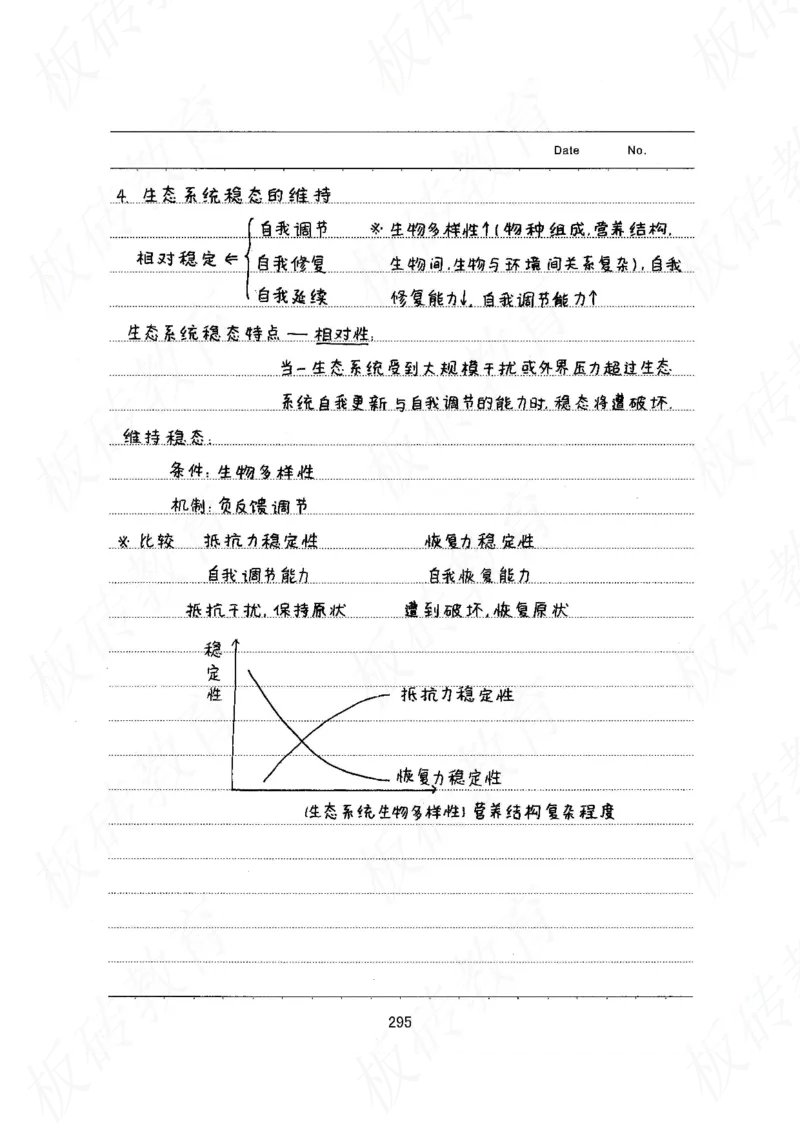 Date No.
4. 生态系统稳态的维持
自我调节 ※生物多样性↑(物种组成,营养结构,
相对稳定⇐ 自我修复 生物间,生物与环境间关系复杂),自我
自我延续 修复能力↓,自我调节能力↑
生态系统稳态特点—相对性:
当一生态系统受到大规模干扰或外界压力超过生态
系统自我更新与自我调节的能力时,稳态将遭破坏.
维持稳态:
条件:生物多样性
机制:负反馈调节
※比较 抵抗力稳定性 恢复力稳定性
自我调节能力 自我恢复能力
抵抗干扰,保持原状 遭到破坏,恢复原状
稳
定
性 抵抗力稳定性
恢复力稳定性
(生态系统生物多样性)营养结构复杂程度
295
板砖教育